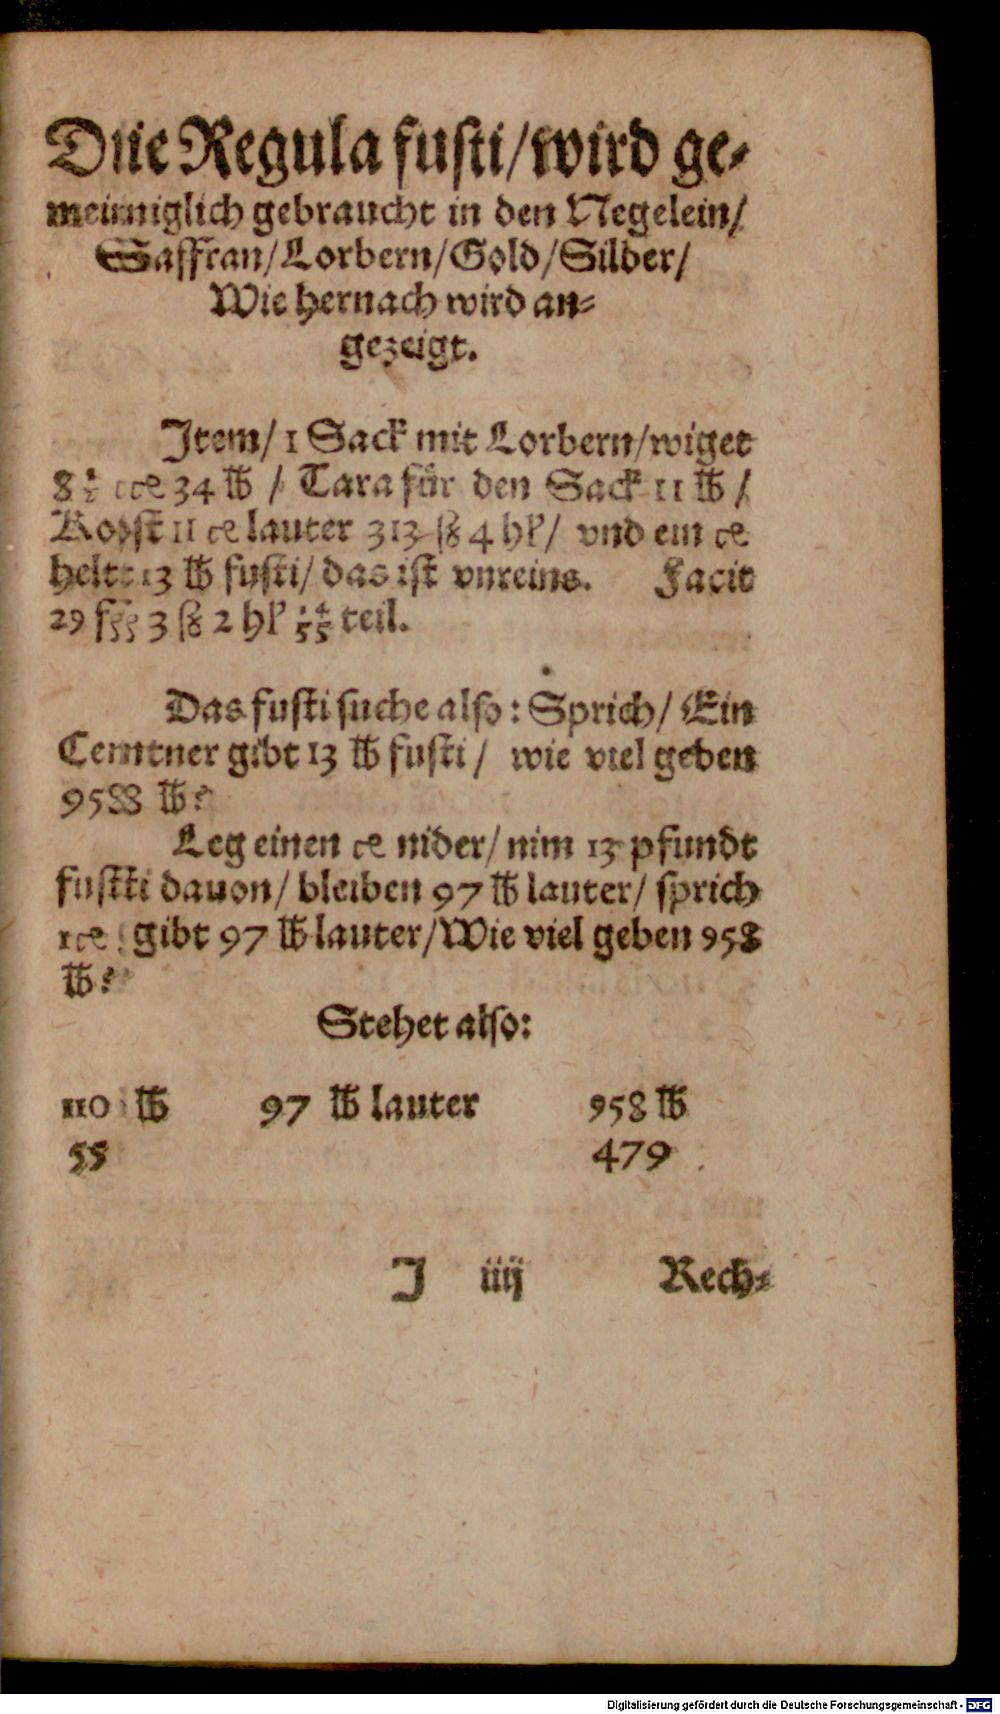 Dỉe Regula fusti/wird ge-
meinniglich gebraucht in den Negelein/
Saffran/Lorbern/Gold/Silber/
Wie hernach wird an-
gezeigt.
Item/ 1 Sack mit Lorbern/wiget
8½ ce 34 ℔ / Tara für den Sack 11 ℔ /
Kost 11 ce lauter 313 ß 4 hl/ vnd ein ce
helt 13 ℔ fusti/ das ist vnreins. Facit
29 3 ß 2 hl 14/55 teil.
Das fusti suche also: Sprich/ Ein
Cemtner gibt 13 ℔ fusti/ wie viel geben
958 ℔?
Leg einen ce nider/ nim 13 pfundt
fustti dauon/ bleiben 97 ℔ lauter/ sprich
1 ce gibt 97 ℔ lauter/Wie viel geben 958
℔?
Stehet also:
110 ℔ 97 ℔ lauter 958 ℔
55 479
J iiij Rech-
Digitalisierung gefördert durch die Deutsche Forschungsgemeinschaft - DFG